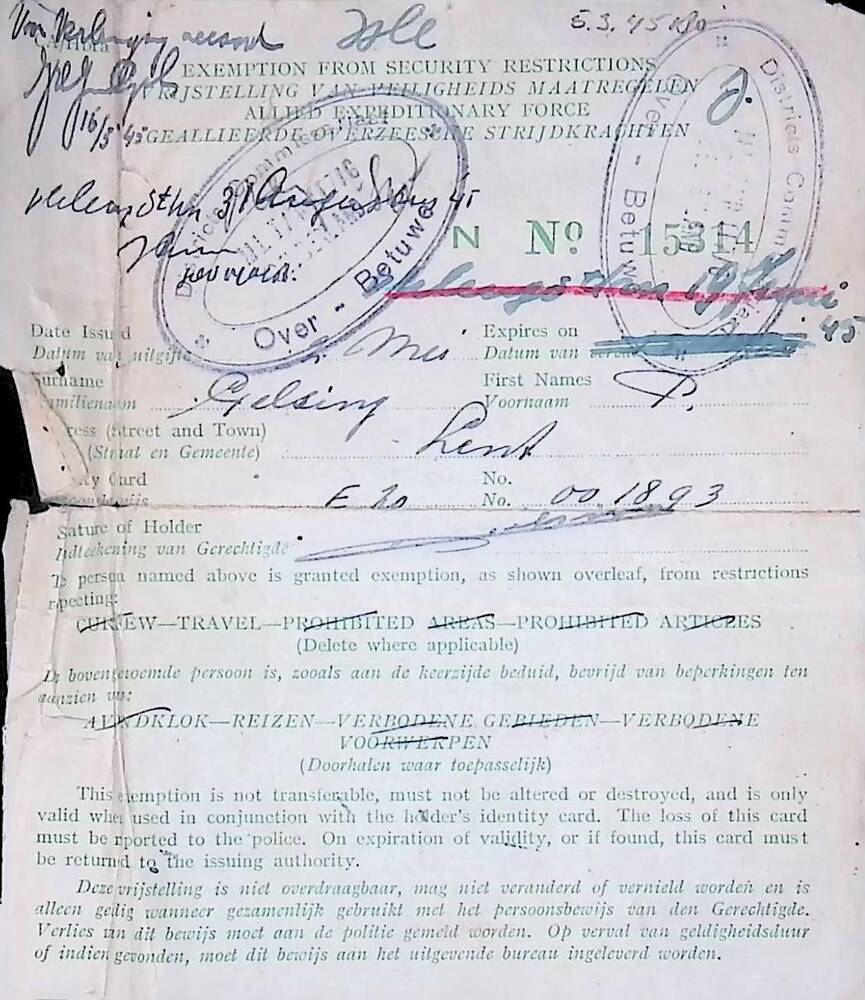 Voor Verlenging accoord
5.3.45
CA/Holla
EXEMPTION FROM SECURITY RESTRICTIONS
VRIJSTELLING VAN VEILIGHEIDS MAATREGELEN
ALLIED EXPEDITIONARY FORCE
GEALLIEERDE OVERZEESCHE STRIJDKRACHTEN
16/5 45
31 Augustus 45
Districts Commissariaat
MILITAIR GEZAG
Over - Betuwe
Districts Comm
Over - Betuwe
N No 15314
19 Juni 45
Date Issued Expires on
Datum van uitgifte Mei Datum van
Surname Gelsing First Names P.
Familienaam Voornaam
ress (Street and Town) Lent
(Straat en Gemeente)
ty Card No.
soonsbewijs E 20 No. 001893
Sature of Holder
ndteekening van Gerechtigde
Te person named above is granted exemption, as shown overleaf, from restrictions
rpecting:
CURFEW—TRAVEL—PROHIBITED AREAS—PROHIBITED ARTICLES
(Delete where applicable)
De bovengenoemde persoon is, zooals aan de keerzijde beduid, bevrijd van beperkingen ten
aanzien van:
AVONDKLOK—REIZEN—VERBODENE GEBIEDEN—VERBODENE
VOORWERPEN
(Doorhalen waar toepasselijk)
This exemption is not transferable, must not be altered or destroyed, and is only
valid when used in conjunction with the holder's identity card. The loss of this card
must be rported to the police. On expiration of validity, or if found, this card must
be returnd to the issuing authority.
Deze vrijstelling is niet overdraagbaar, mag niet veranderd of vernield worden en is
alleen gedig wanneer gezamenlijk gebruikt met het persoonsbewijs van den Gerechtigde.
Verlies van dit bewijs moet aan de politie gemeld worden. Op verval van geldigheidsduur
of indien gevonden, moet dit bewijs aan het uitgevende bureau ingeleverd worden.